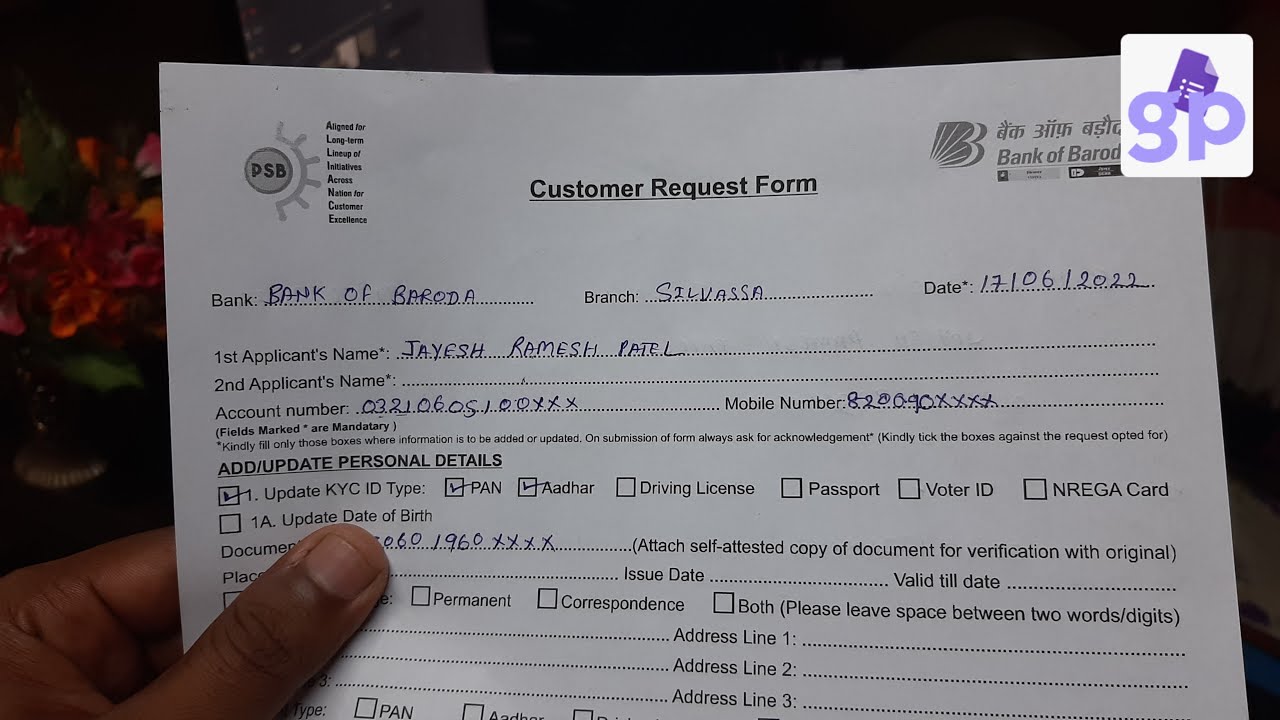 Aligned for
Long-term
Lineup of
Initiatives
Across
Nation for
Customer
Excellence
PSB
बैंक ऑफ़
Bank of
gp
Customer Request Form
Bank: BANK OF BARODA Branch: SILVASSA Date*: 17/06/2022
1st Applicant's Name*: JAYESH RAMESH PATEL
2nd Applicant's Name*:
Account number: 03210605100XXX Mobile Number: 820090XXXX
(Fields Marked * are Mandatary )
*Kindly fill only those boxes where information is to be added or updated. On submission of form always ask for acknowledgement* (Kindly tick the boxes against the request opted for)
ADD/UPDATE PERSONAL DETAILS
1. Update KYC ID Type: PAN Aadhar Driving License Passport Voter ID NREGA Card
1A. Update Date of Birth
060 1960 XXXX (Attach self-attested copy of document for verification with original)
Issue Date Valid till date
Permanent Correspondence Both (Please leave space between two words/digits)
Address Line 1:
Address Line 2:
3: Address Line 3:
Type: PAN